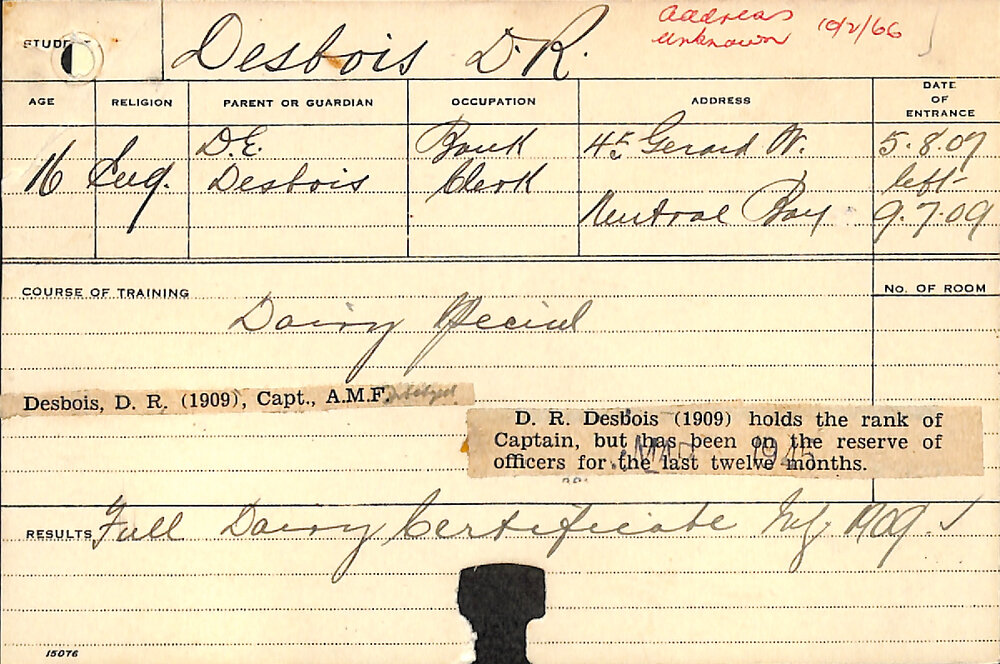 STUDE
Desbois D.R.
address
unknown 10/2/66
AGE RELIGION PARENT OR GUARDIAN OCCUPATION ADDRESS DATE OF ENTRANCE
16 Eng. D.E. Desbois Bank Clerk 45 Gerard W. Neutral Bay 5.8.07 left 9.7.09
COURSE OF TRAINING
No. OF ROOM
Dairy Special
Desbois, D. R. (1909), Capt., A.M.F.
D. R. Desbois (1909) holds the rank of
Captain, but has been on the reserve of
officers for the last twelve months.
MAR 1945
RESULTS Full Dairy Certificate 1909.
15076